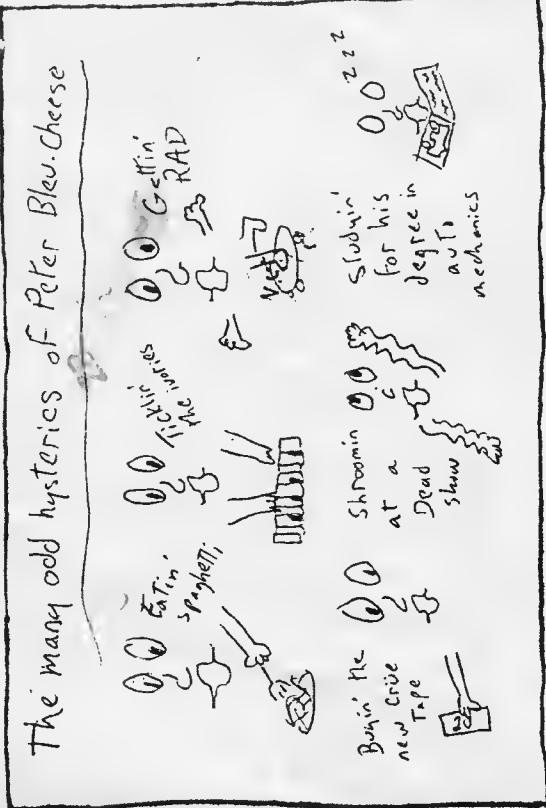 The many odd hysteries of Peter Bleu.cheese
Eatin'
spaghetti
Ticklin'
the ivories
Gettin'
RAD
Buyin' the
new Crüe
Tape
Shroomin
at a
Dead
show
Studyin'
for his
degree in
auto
mechanics
z z z